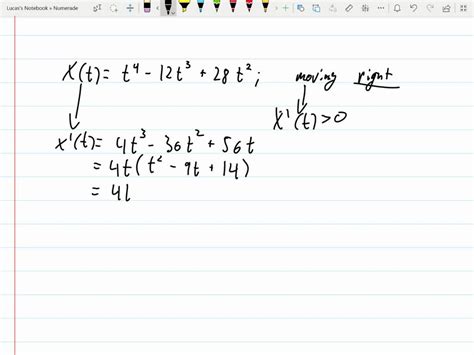 Lucas's Notebook » Numerade
x(t) = t⁴ - 12t³ + 28t² ; moving right
x'(t) > 0
x'(t) = 4t³ - 36t² + 56t
= 4t(t² - 9t + 14)
= 4t